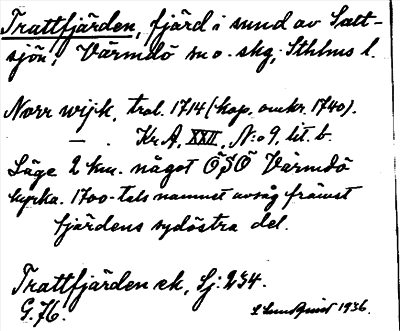 Trattfjärden, fjärd i sund av Salt-
sjön, Värmdö sn o. skg, Sthlms l.
Norr wijk, trol. 1714 (kop. omkr. 1740).
— . Kr A, XXII, N:o 9, lit. b.
Läge 2 km. något ÖSÖ Värmdö
kyrka. 1700-tals namnet avsåg främst
fjärdens sydöstra del.
Trattfjärden ek, Sj: 234.
G. 76. S Lundquist 1936.